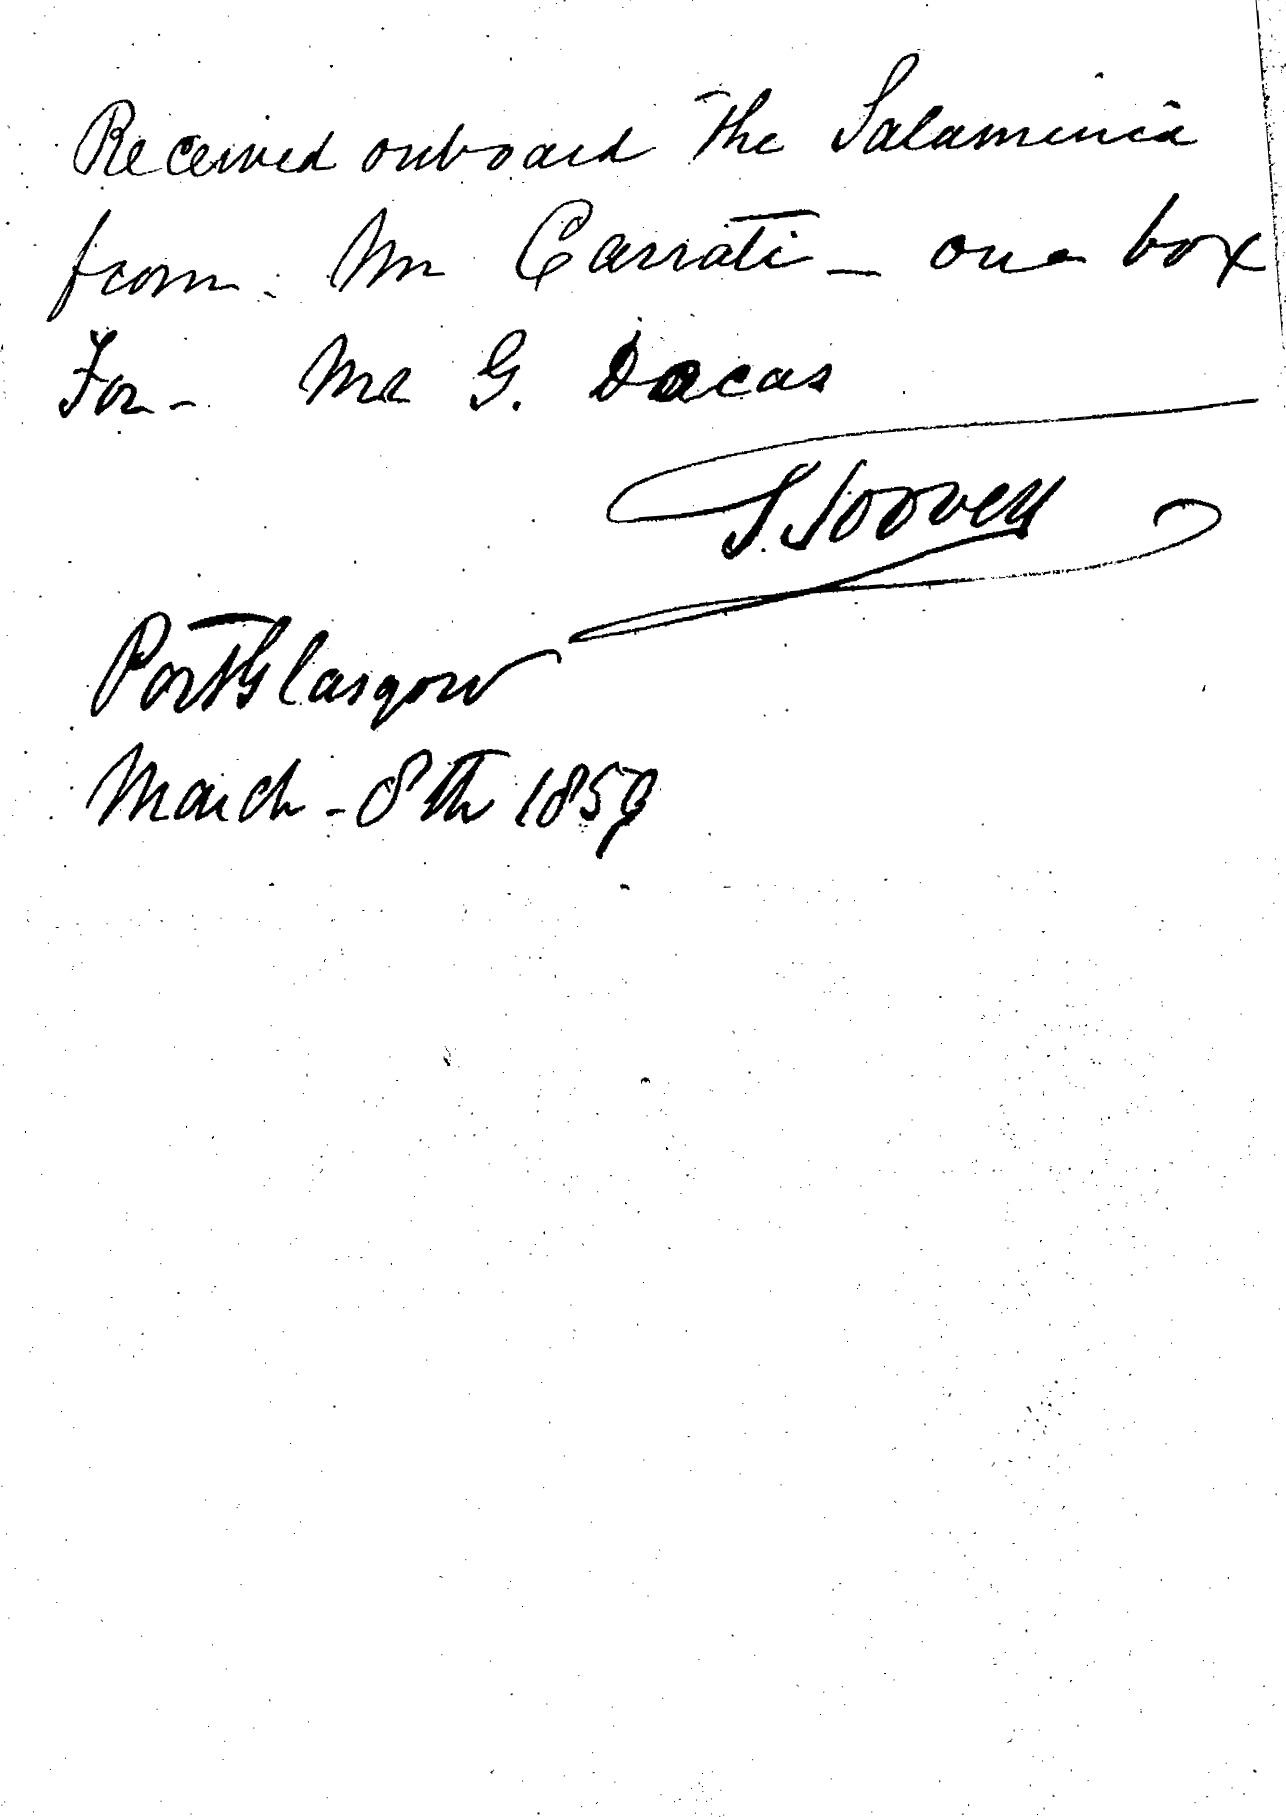 Received onboard the Salaminia
from. Mr Carrati - one box
For - Mr G. Dacas
Port Glasgow
March - 8th 1859